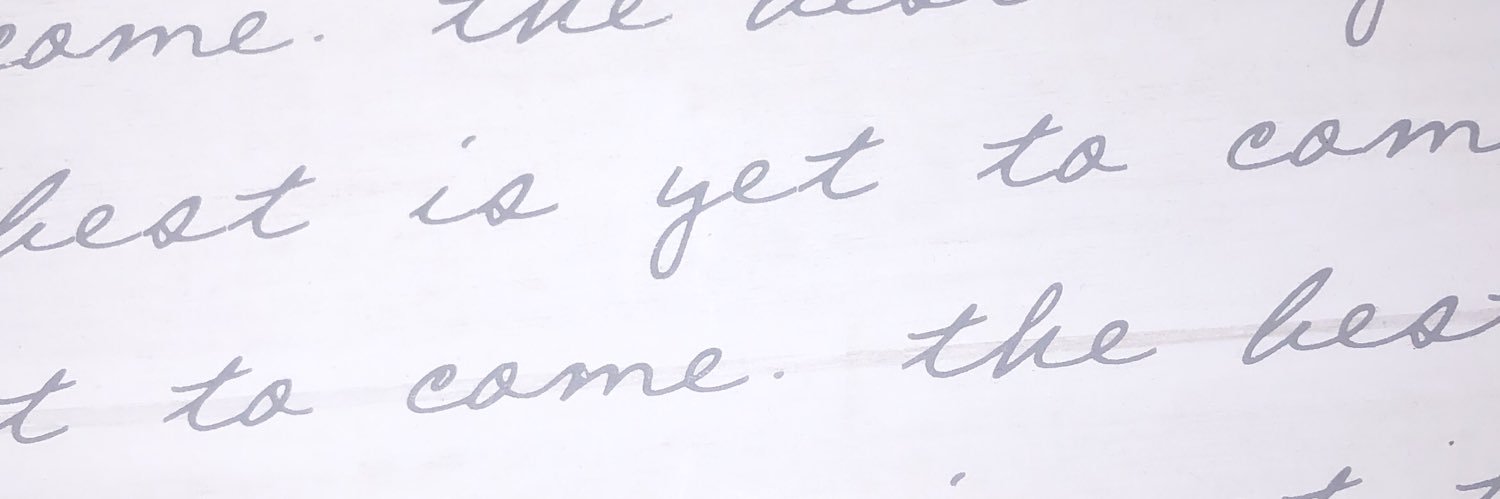 come. the best
best is yet to com
t to come. the best